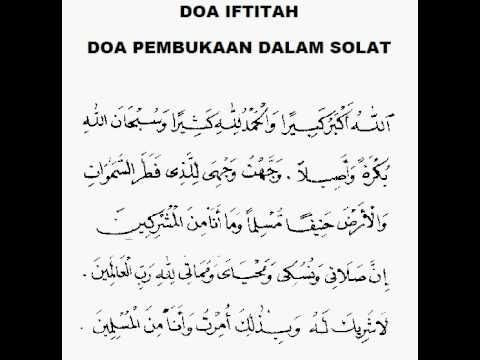 DOA IFTITAH
DOA PEMBUKAAN DALAM SOLAT
اَللهُ أَكْبَرُ كَبِيْرًا وَالْحَمْدُ لِلّٰهِ كَثِيْرًا وَسُبْحَانَ اللهِ
بُكْرَةً وَأَصِيْلاً . وَجَّهْتُ وَجْهِيَ لِلَّذِى فَطَرَ السَّمٰوَاتِ
وَالْأَرْضَ حَنِيْفًا مُسْلِمًا وَمَا أَنَا مِنَ الْمُشْرِكِيْنَ
إِنَّ صَلَاتِى وَنُسُكِى وَمَحْيَاىَ وَمَمَاتِى لِلّٰهِ رَبِّ الْعَالَمِيْنَ .
لَا شَرِيْكَ لَهُ وَبِذٰلِكَ أُمِرْتُ وَأَنَا مِنَ الْمُسْلِمِيْنَ .